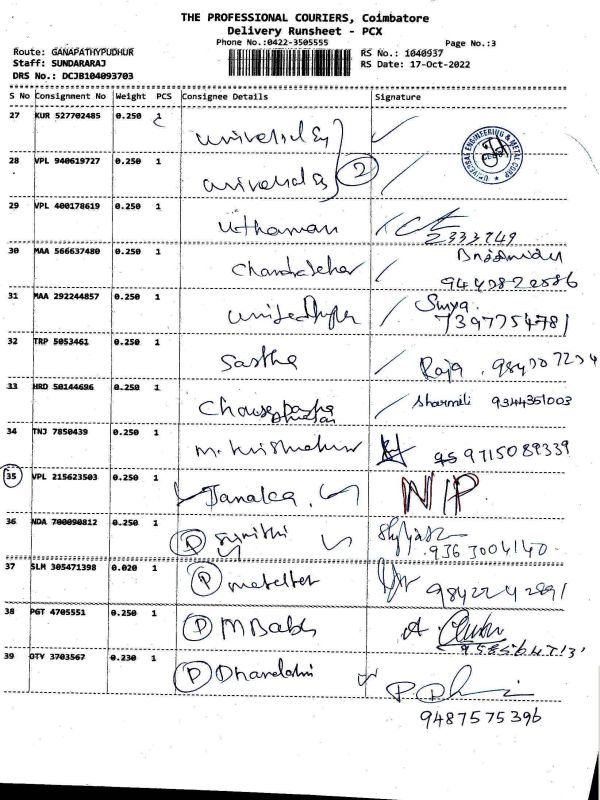 THE PROFESSIONAL COURIERS, Coimbatore
Delivery Runsheet - PCX
Phone No.:0422-3505555
Page No.:3
Route: GANAPATHYPUDHUR
Staff: SUNDARARAJ
DRS No.: DCJB104093703
RS No.: 1040937
RS Date: 17-Oct-2022
S No Consignment No Weight PCS Consignee Details Signature
27 KUR 527702485 0.250 1 universal Eg
UNIVERSAL ENGINEERING & METAL CORP
28 VPL 940619727 0.250 1 universal Eg 2
29 VPL 400178619 0.250 1 uthaman
2333749
30 MAA 566637480 0.250 1 Chandrasekar
31 MAA 292244857 0.250 1 Surya
7397754781
32 TRP 5053461 0.250 1 Sastha Raja
33 HRD 50144696 0.250 1 Sharmili 9344351003
34 TNJ 7850439 0.250 1 9715089339
35 VPL 215623503 0.250 1 Janaka N/P
36 NDA 700090812 0.250 1 P
9363004140
37 SLM 305471398 0.020 1 P
9842242891
38 PGT 4705551 0.250 1 P M Babu
39 OTY 3703567 0.230 1 P
9487575396